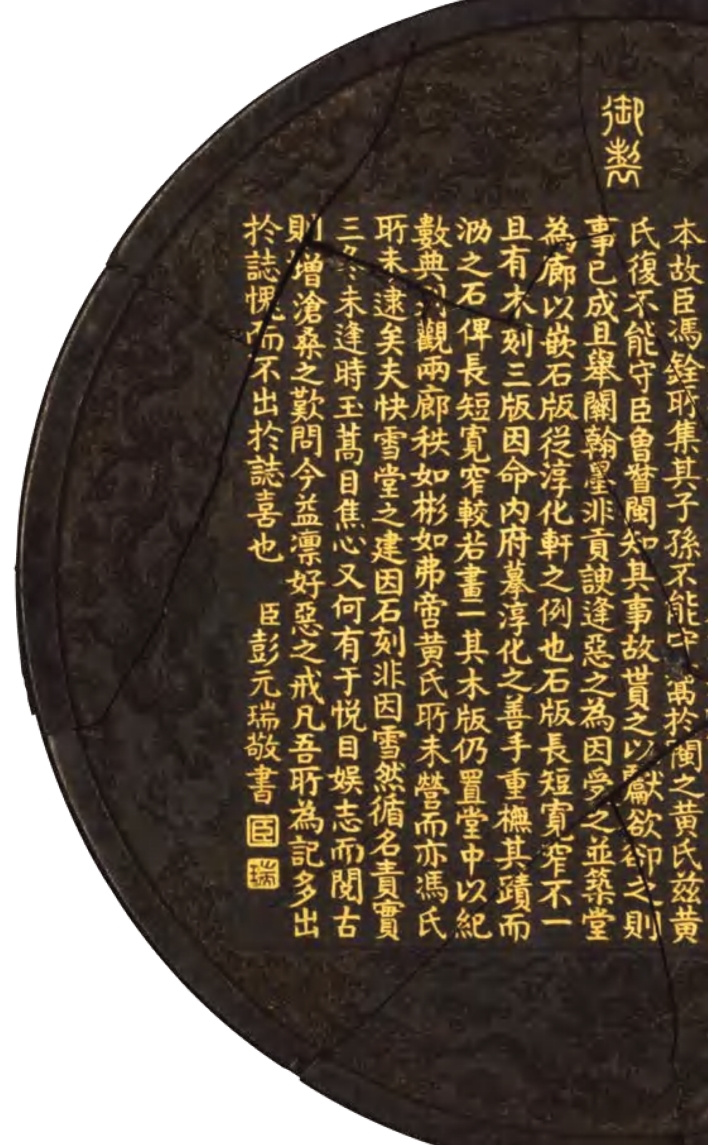 御製
本故臣馮銓所集其子孫不能守鬻於閩之黃氏茲黃
氏復不能守臣曾督閩知其事故貰之以獻欲卻之則
事已成且舉關翰墨非貢諛逢惡之為因受之並築堂
為廊以嵌石版從淳化軒之例也石版長短寬窄不一
且有木刻三版因命內府摹淳化之善手重橅其蹟而
泐之石俾長短寬窄較若畫一其木版仍置堂中以紀
數典列觀兩廊秩如彬如弗啻黃氏所未營而亦馮氏
所未逮矣夫快雪堂之建因石刻非因雪然循名責實
三冬未逢時玉蒿目焦心又何有于悅目娛志而閱古
則增滄桑之歎問今益凛好惡之戒凡吾所為記多出
於誌愧而不出於誌喜也 臣彭元瑞敬書
臣
瑞